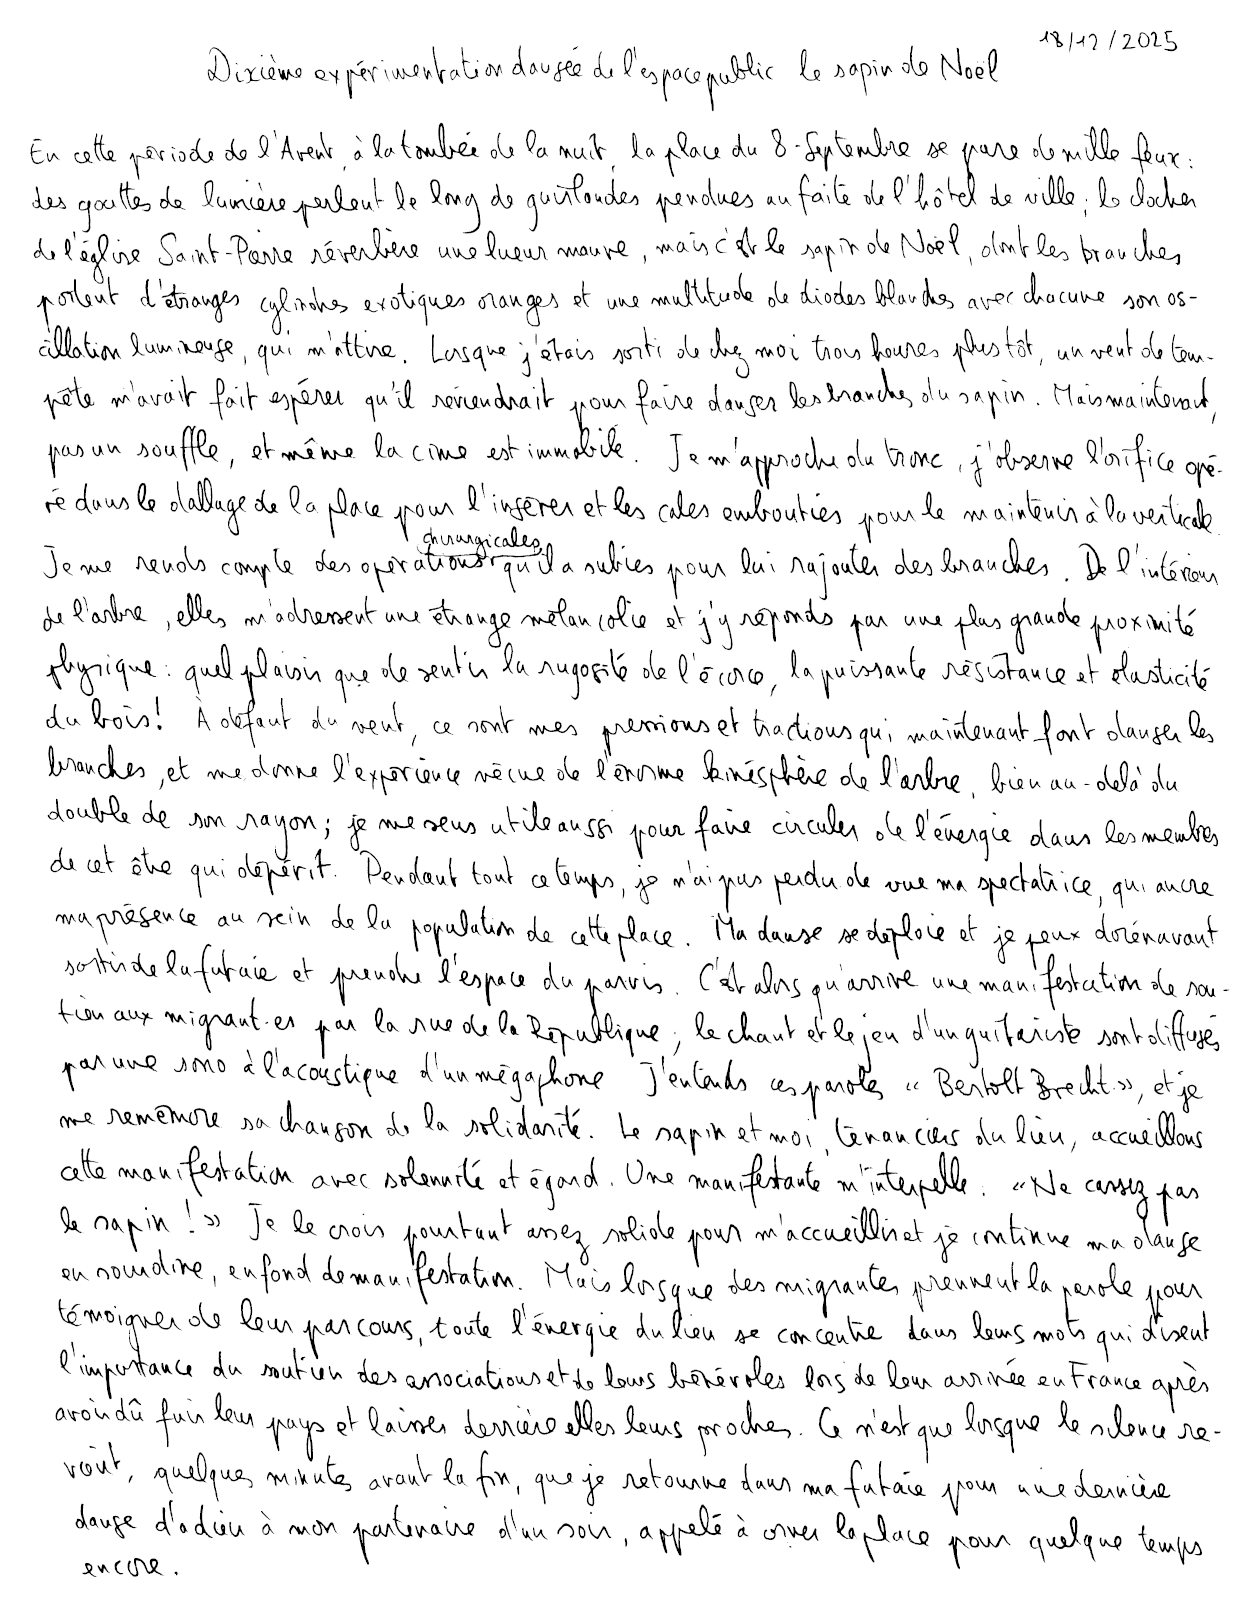 18/12/2025
Dixième expérimentation dansée de l'espace public le sapin de Noël
En cette période de l'Avent, à la tombée de la nuit, la place du 8-Septembre se pare de mille feux :
des gouttes de lumière perlent le long de guirlandes pendues au faîte de l'hôtel de ville ; le clocher
de l'église Saint-Pierre réverbère une lueur mauve, mais c'est le sapin de Noël, dont les branches
portent d'étranges cylindres exotiques oranges et une multitude de diodes blanches avec chacune son os-
cillation lumineuse, qui m'attire. Lorsque j'étais sorti de chez moi trois heures plus tôt, un vent de tem-
pête m'avait fait espérer qu'il reviendrait pour faire danser les branches du sapin. Mais maintenant,
pas un souffle, et même la cime est immobile. Je m'approche du tronc, j'observe l'orifice opé-
ré dans le dallage de la place pour l'insérer et les cales embouties pour le maintenir à la verticale.
Je me rends compte des opérations chirurgicales qu'il a subies pour lui rajouter des branches. De l'intérieur
de l'arbre, elles m'adressent une étrange mélancolie et j'y réponds par une plus grande proximité
physique : quel plaisir que de sentir la rugosité de l'écorce, la puissante résistance et élasticité
du bois ! À défaut du vent, ce sont mes pressions et tractions qui maintenant font danser les
branches, et me donne l'expérience vécue de l'énorme kinésphère de l'arbre, bien au-delà du
double de son rayon ; je me sens utile aussi pour faire circuler de l'énergie dans les membres
de cet être qui dépérit. Pendant tout ce temps, je n'ai pas perdu de vue ma spectatrice, qui ancre
ma présence au sein de la population de cette place. Ma danse se déploie et je peux dorénavant
sortir de la futaie et prendre l'espace du parvis. C'est alors qu'arrive une manifestation de sou-
tien aux migrant·es par la rue de la République ; le chant et le jeu d'un guitariste sont diffusés
par une sono à l'acoustique d'un mégaphone J'entends ces paroles « Bertolt Brecht », et je
me remémore sa chanson de la solidarité. Le sapin et moi, tenanciers du lieu, accueillons
cette manifestation avec solennité et égard. Une manifestante m'interpelle : « Ne cassez pas
le sapin ! » Je le crois pourtant assez solide pour m'accueillir et je continue ma danse
en sourdine, en fond de manifestation. Mais lorsque des migrantes prennent la parole pour
témoigner de leur parcours, toute l'énergie du lieu se concentre dans leurs mots qui disent
l'importance du soutien des associations et de leurs bénévoles lors de leur arrivée en France après
avoir dû fuir leur pays et laisser derrière elles leurs proches. Ce n'est que lorsque le silence re-
vient, quelques minutes avant la fin, que je retourne dans ma futaie pour une dernière
danse d'adieu à mon partenaire d'un soir, appelé à orner la place pour quelque temps
encore.